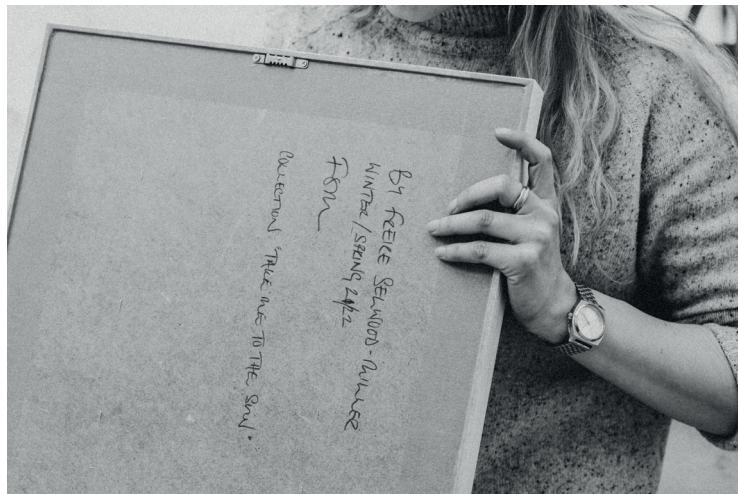 BY FREIE SELWOOD-MILLER
WINTER/SPRING 21/22
COLLECTION "TAKE ME TO THE SUN".